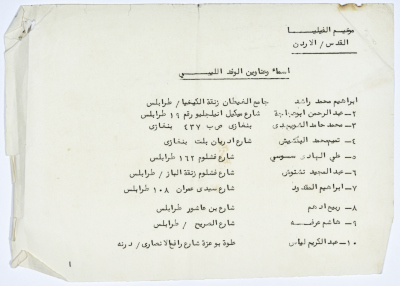 مخيم الفيليبـــا
القدس / الاردن
اسماء وعناوين الوفد الليبـــي
ابراهيم محمد راشد جامع الخيطان زنقة الكيخيا / طرابلس
٢ - عبد الرحمن ابوجراحة شارع ميكيل انيلجليو رقم ١٦ طرابلس
٣ - محمد حامد الشويهدى بنغازى ص ب ٤٣٧ بنغازى
٤ - شارع بلت بنغازى
٥ - على الهادى سوسي شارع غشلوم ١٦٢ طرابلس
٦ - عبد المجيد شارع غشلوم زنقة الباز / طرابلس
٧ - ابراهيم شارع سيدى عمران ١٠٨ طرابلس
٨ - ربيع ادهم شارع بن عاشور طرابلس
٩ - هاشم عرفـــه شارع الصريح / طرابلس
١٠ - عبد الكريم لياس بو عزة شارع رافع الانصارى / درنه